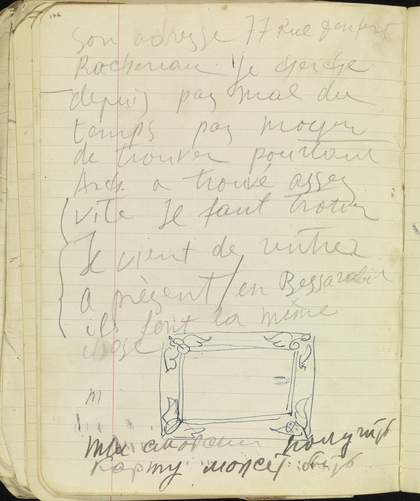 Son adresse 77 Rue Denfert
Rochereau Je cherche
depuis pas mal du
temps pas moyen
de trouver pourtant
a trouvé assez
vite Je faut trouver
Je vient de rentrez
a présent / en Bessarabie
ils font la même
chose
m
Мы получить
карту может быть